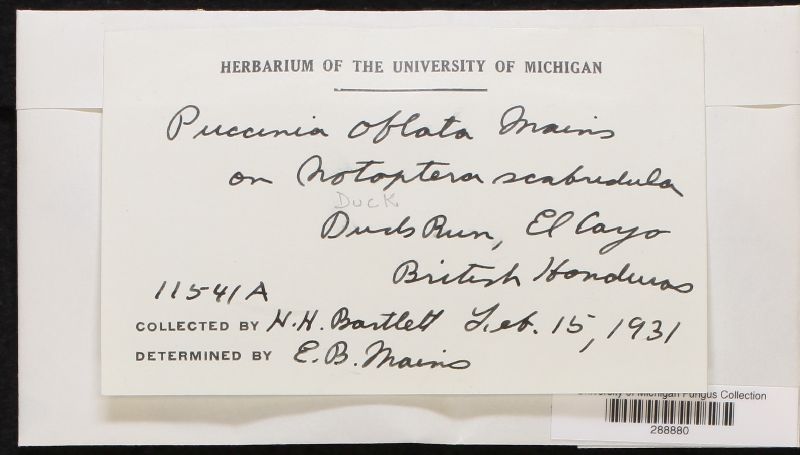 HERBARIUM OF THE UNIVERSITY OF MICHIGAN
Puccinia oblata Mains
on Notoptera scabridula
Duck
Duck Run, El Cayo
British Honduras
11541A
COLLECTED BY H.H. Bartlett Feb. 15, 1931
DETERMINED BY E.B. Mains
University of Michigan Fungus Collection
288880